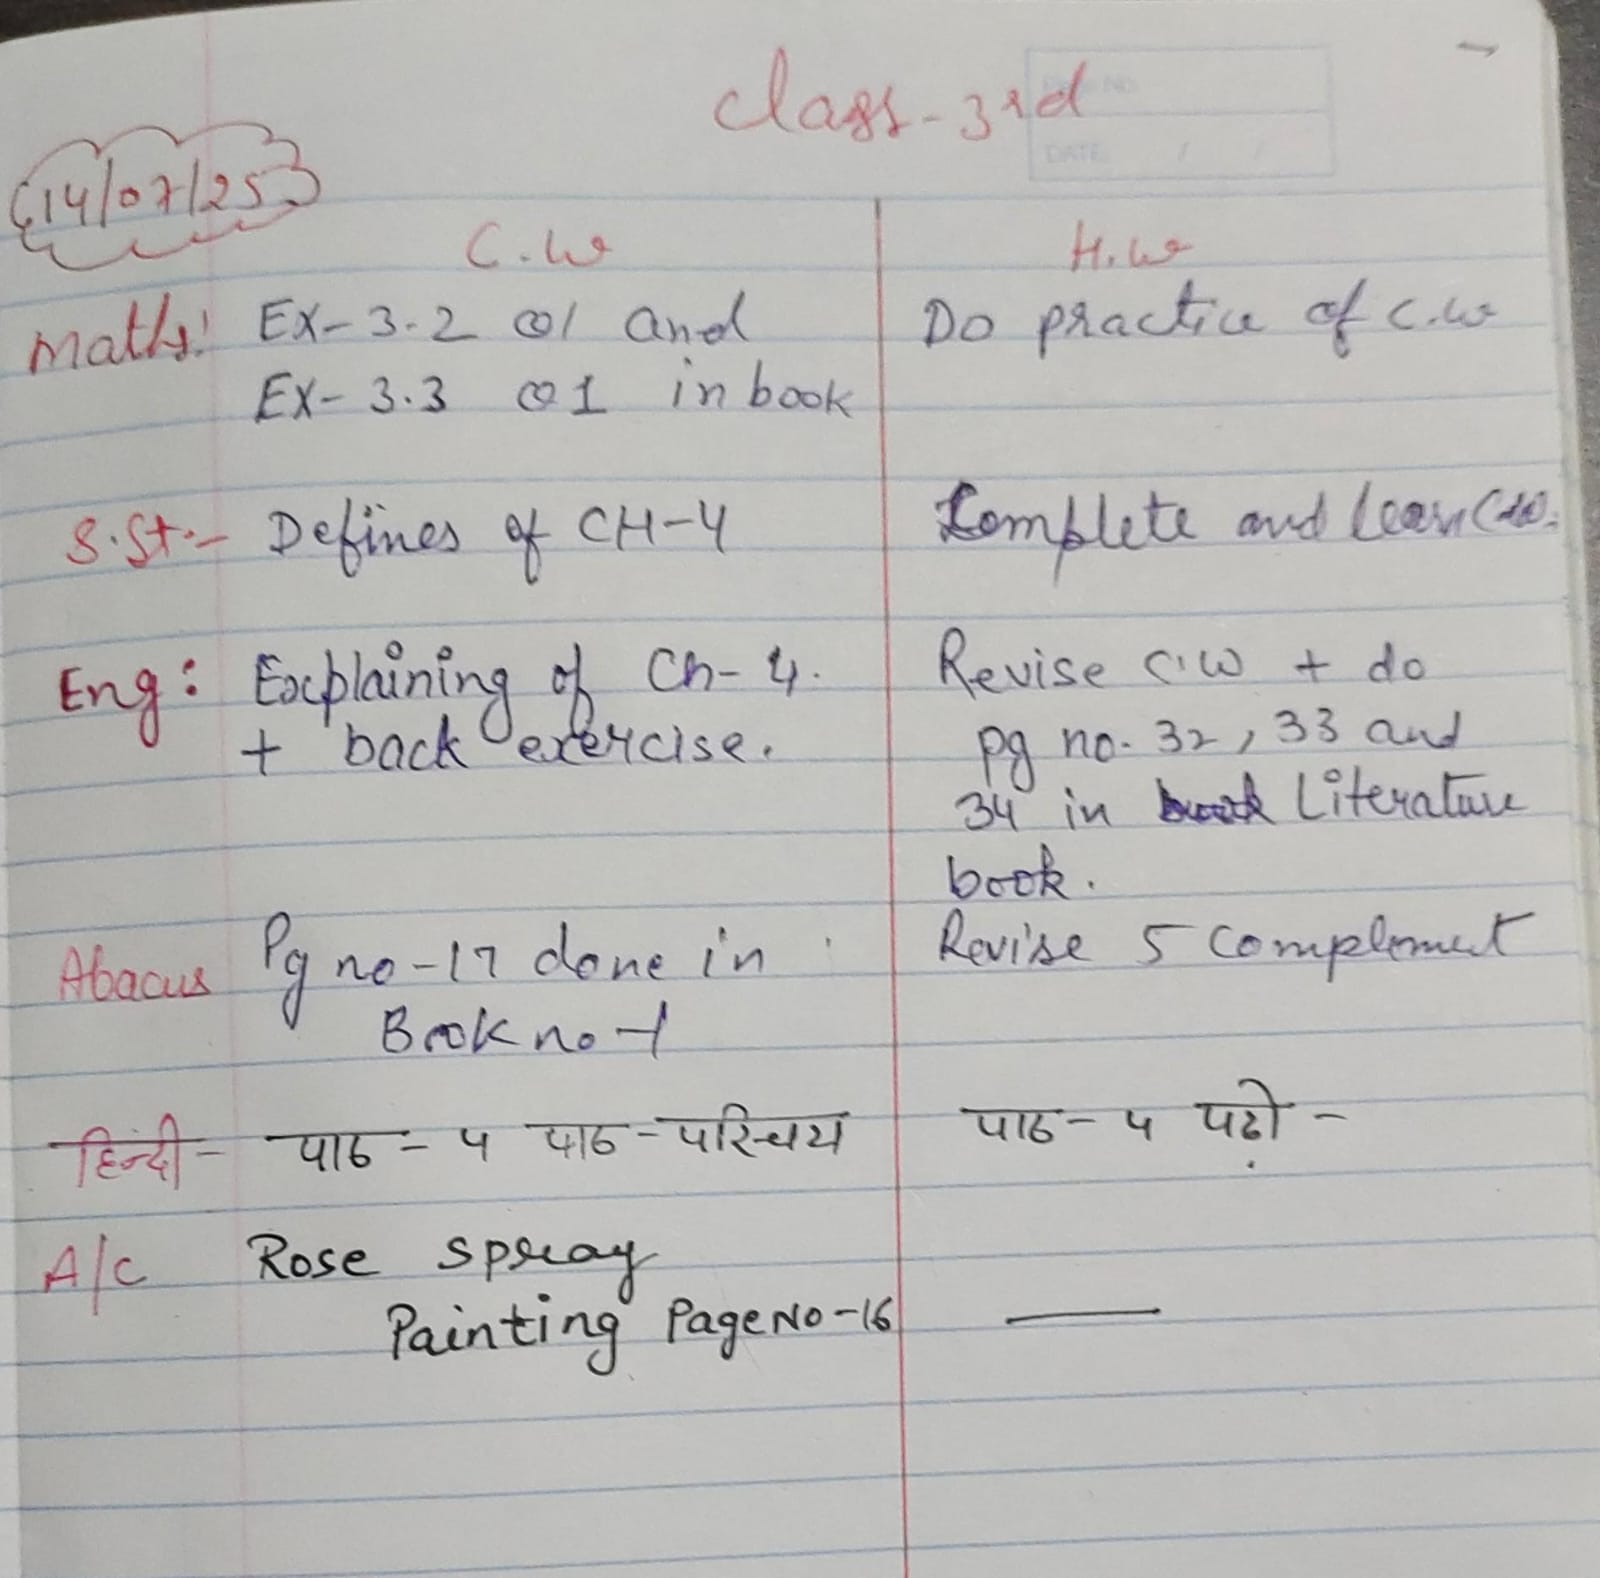 Class-3rd
14/07/25
C.W
H.W
Maths: Ex-3.2 Q1 and
Do practice of C.W
Ex-3.3 Q1 in book
S.St.- Defines of CH-4
Complete and learn C.W.
Eng: Explaining of Ch-4.
Revise C.W + do
+ back exercise.
pg no. 32, 33 and
34 in Literature
book.
Abacus Pg no-17 done in
Revise 5 Complement
Book no-1
हिन्दी- पाठ- ५ पाठ-परिचय
पाठ- ५ पढ़ो -
A/C Rose spray
Painting Page No-16
DATE / /